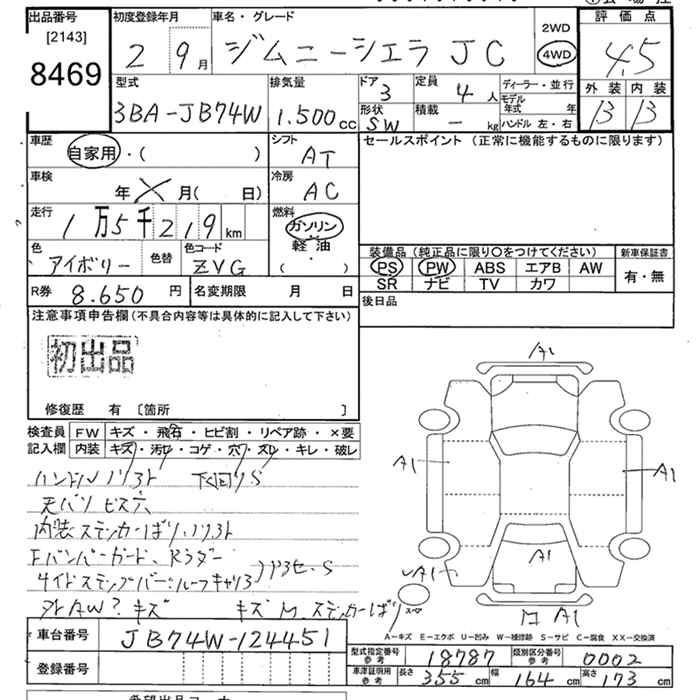 出品番号 初度登録年月 車名・グレード 評価点
[2143]
8469
2 9月 ジムニーシエラ JC 2WD 4WD 4.5
型式 排気量 ドア 定員 ディーラー・並行 外装 内装
3BA-JB74W 1.500cc 3 4人 モデル年式 年 B B
形状 積載 ハンドル 左・右
SW - kg
車歴 シフト セールスポイント (正常に機能するものに限ります)
自家用・( ) AT
車検 冷房
年 月( 日) AC
走行 燃料
1万5千219km ガソリン
軽油
( )
色 色替 色コード 装備品(純正品に限り〇をつけてください) 新車保証書
アイボリー ZVG PS PW ABS エアB AW 有・無
SR ナビ TV カワ
R券 8.650円 名変期限 月 日 後日品
注意事項申告欄(不具合内容等は具体的に記入して下さい)
初出品
修復歴 有 [箇所 ]
検査員 FW キズ・飛石・ヒビ割・リペア跡・×要
記入欄 内装 キズ・汚レ・コゲ・穴・スレ・キレ・破レ
ビス穴
内装ステッカーばり
Fバンパーガード、
AW? キズ キズ M ステッカーばり
A1
A1
A1
A1
A1
A1
A-キズ E-エクボ U-凹み W-補修跡 S-サビ C-腐食 XX-交換済
車台番号 JB74W-124451
登録番号
型式指定番号 参考 18787 類別区分番号 参考 0002
車庫証明用 参考 長さ 355cm 幅 164cm 高さ 173cm